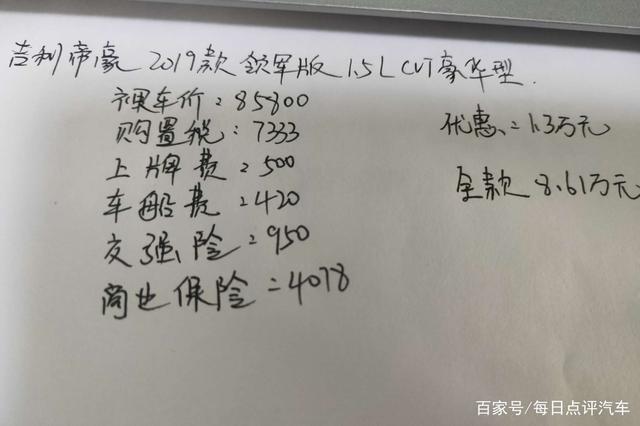 吉利帝豪 2019款 领军版 1.5L CVT豪华型.
裸车价:85800
购置税:7333
上牌费:500
车船费:420
交强险:950
商业保险:4078
优惠:1.3万元
全款 8.61万元
百家号/每日点评汽车